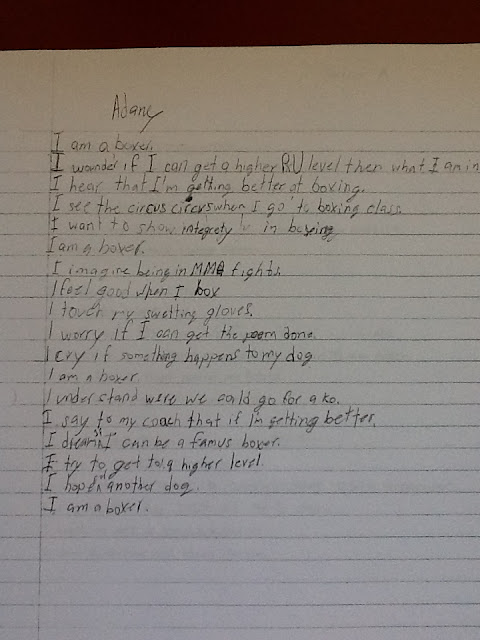 Adane
I am a boxer.
I wounder if I can get a higher R&U level then what I am in
I hear that I'm getting better at boxing.
I see the circus circus when I go to boxing class.
I want to show integrety in boxing
I am a boxer.
I imagine being in MMA fights.
I feel good when I box
I touch my swetting gloves.
I worry if I can get the poem done.
I cry if something happens to my dog.
I am a boxer
I understand were we could go for a ko.
I say to my coach that if I'm getting better.
I dream I can be a famus boxer.
I try to get to a higher level.
I hope another dog.
I am a boxer.